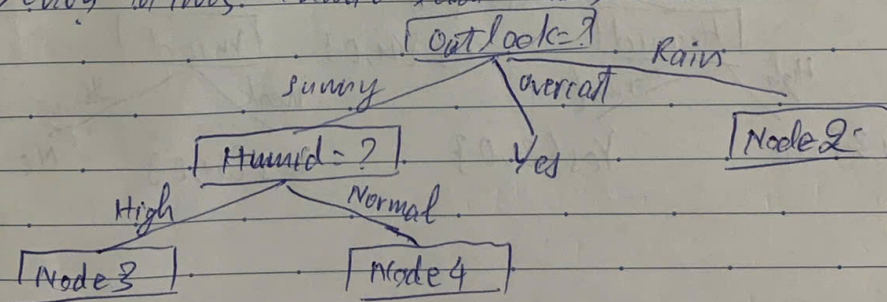 Outlook=?
Sunny overcast Rain
Humid=? Yes Node 2
High Normal
Node 3 Node 4